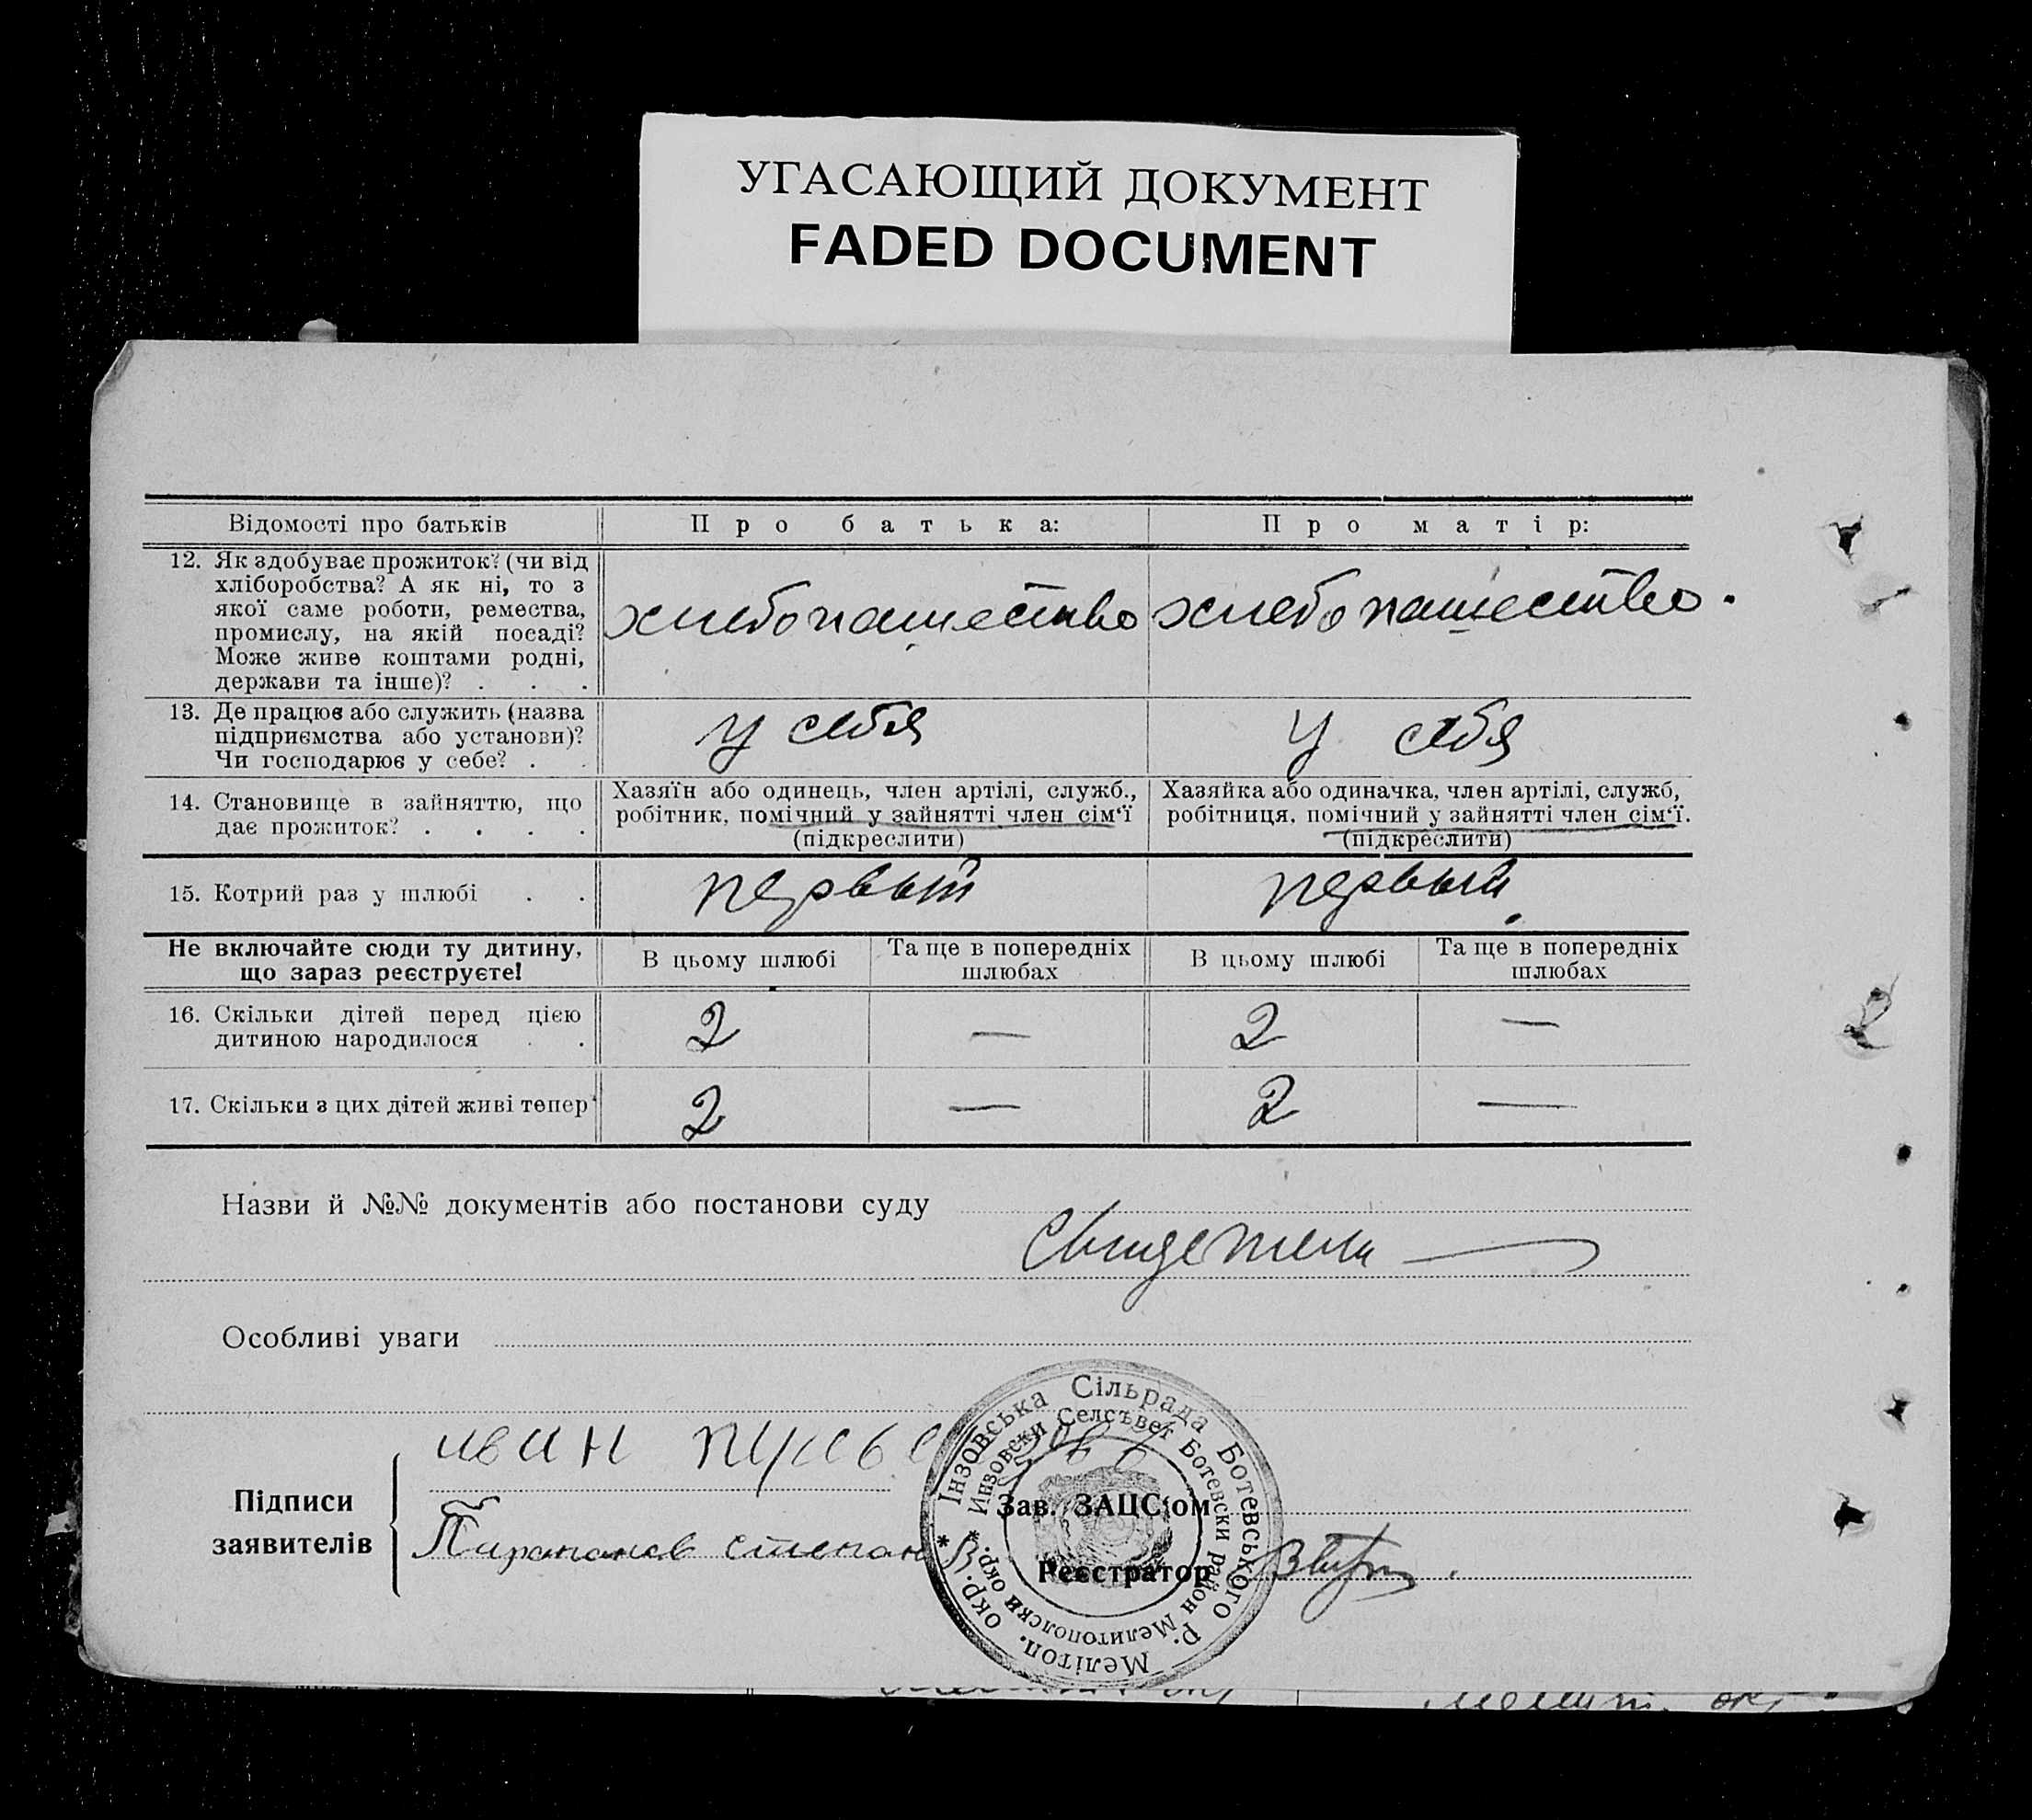 УГАСАЮЩИЙ ДОКУМЕНТ
FADED DOCUMENT
Відомості про батьків
Про батька:
Про матір:
12. Як здобуває прожиток? (чи від
хліборобства? А як ні, то з
якої саме роботи, ремества,
промислу, на якій посаді?
Може живе коштами родні,
держави та інше)? . . .
хлебопашество
хлебопашество.
13. Де працює або служить (назва
підприємства або установи)?
Чи господарює у себе? . .
у себя
у себя
14. Становище в зайняттю, що
дає прожиток? . . . .
Хазяїн або одинець, член артілі, служб.,
робітник, помічний у зайнятті член сім'ї
(підкреслити)
Хазяйка або одиначка, член артілі, служб,
робітниця, помічний у зайнятті член сім'ї.
(підкреслити)
15. Котрий раз у шлюбі . .
первый
первый
Не включайте сюди ту дитину,
що зараз реєструєте!
В цьому шлюбі
Та ще в попередніх
шлюбах
В цьому шлюбі
Та ще в попередніх
шлюбах
16. Скільки дітей перед цією
дитиною народилося . .
2
—
2
—
17. Скільки з цих дітей живі тепер
2
—
2
—
Назви й №№ документів або постанови суду
Свидетели
Особливі уваги
Підписи
заявителів
иван
степан
Зав. ЗАЦС'ом
Реєстратор
Інзовська Сільрада Ботевського р. Мелітоп. окр. *
Инзовски Селсъвет Ботевски район Мелитополски окр. *